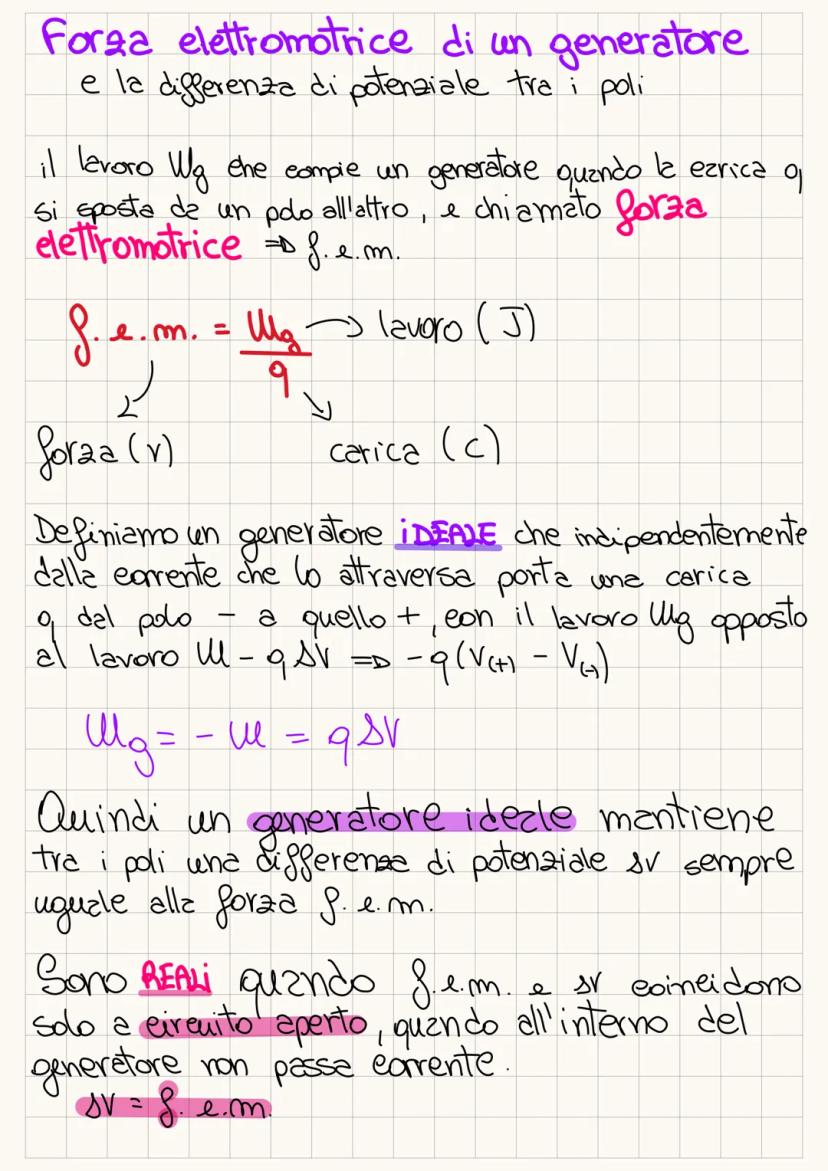 Forza elettromotrice di un generatore
e la differenza di potenziale tra i poli
il lavoro Wg che compie un generatore quando la carica q
si sposta da un polo all'altro, e chiamato forza
elettromotrice => f.e.m.
f.e.m. = Wg/q → lavoro (J)
forza (v) carica (C)
Definiamo un generatore iDEALE che indipendentemente
dalla corrente che lo attraversa porta una carica
q dal polo - a quello +, con il lavoro Wg opposto
al lavoro W - q ΔV => -q (V(+) - V(-))
Wg = - W = q ΔV
Quindi un generatore ideale mantiene
tra i poli una differenza di potenziale ΔV sempre
uguale alla forza f.e.m.
Sono REALi quando f.e.m. e ΔV coincidono
solo a circuito aperto, quando all'interno del
generatore non passa corrente.
ΔV = f.e.m.